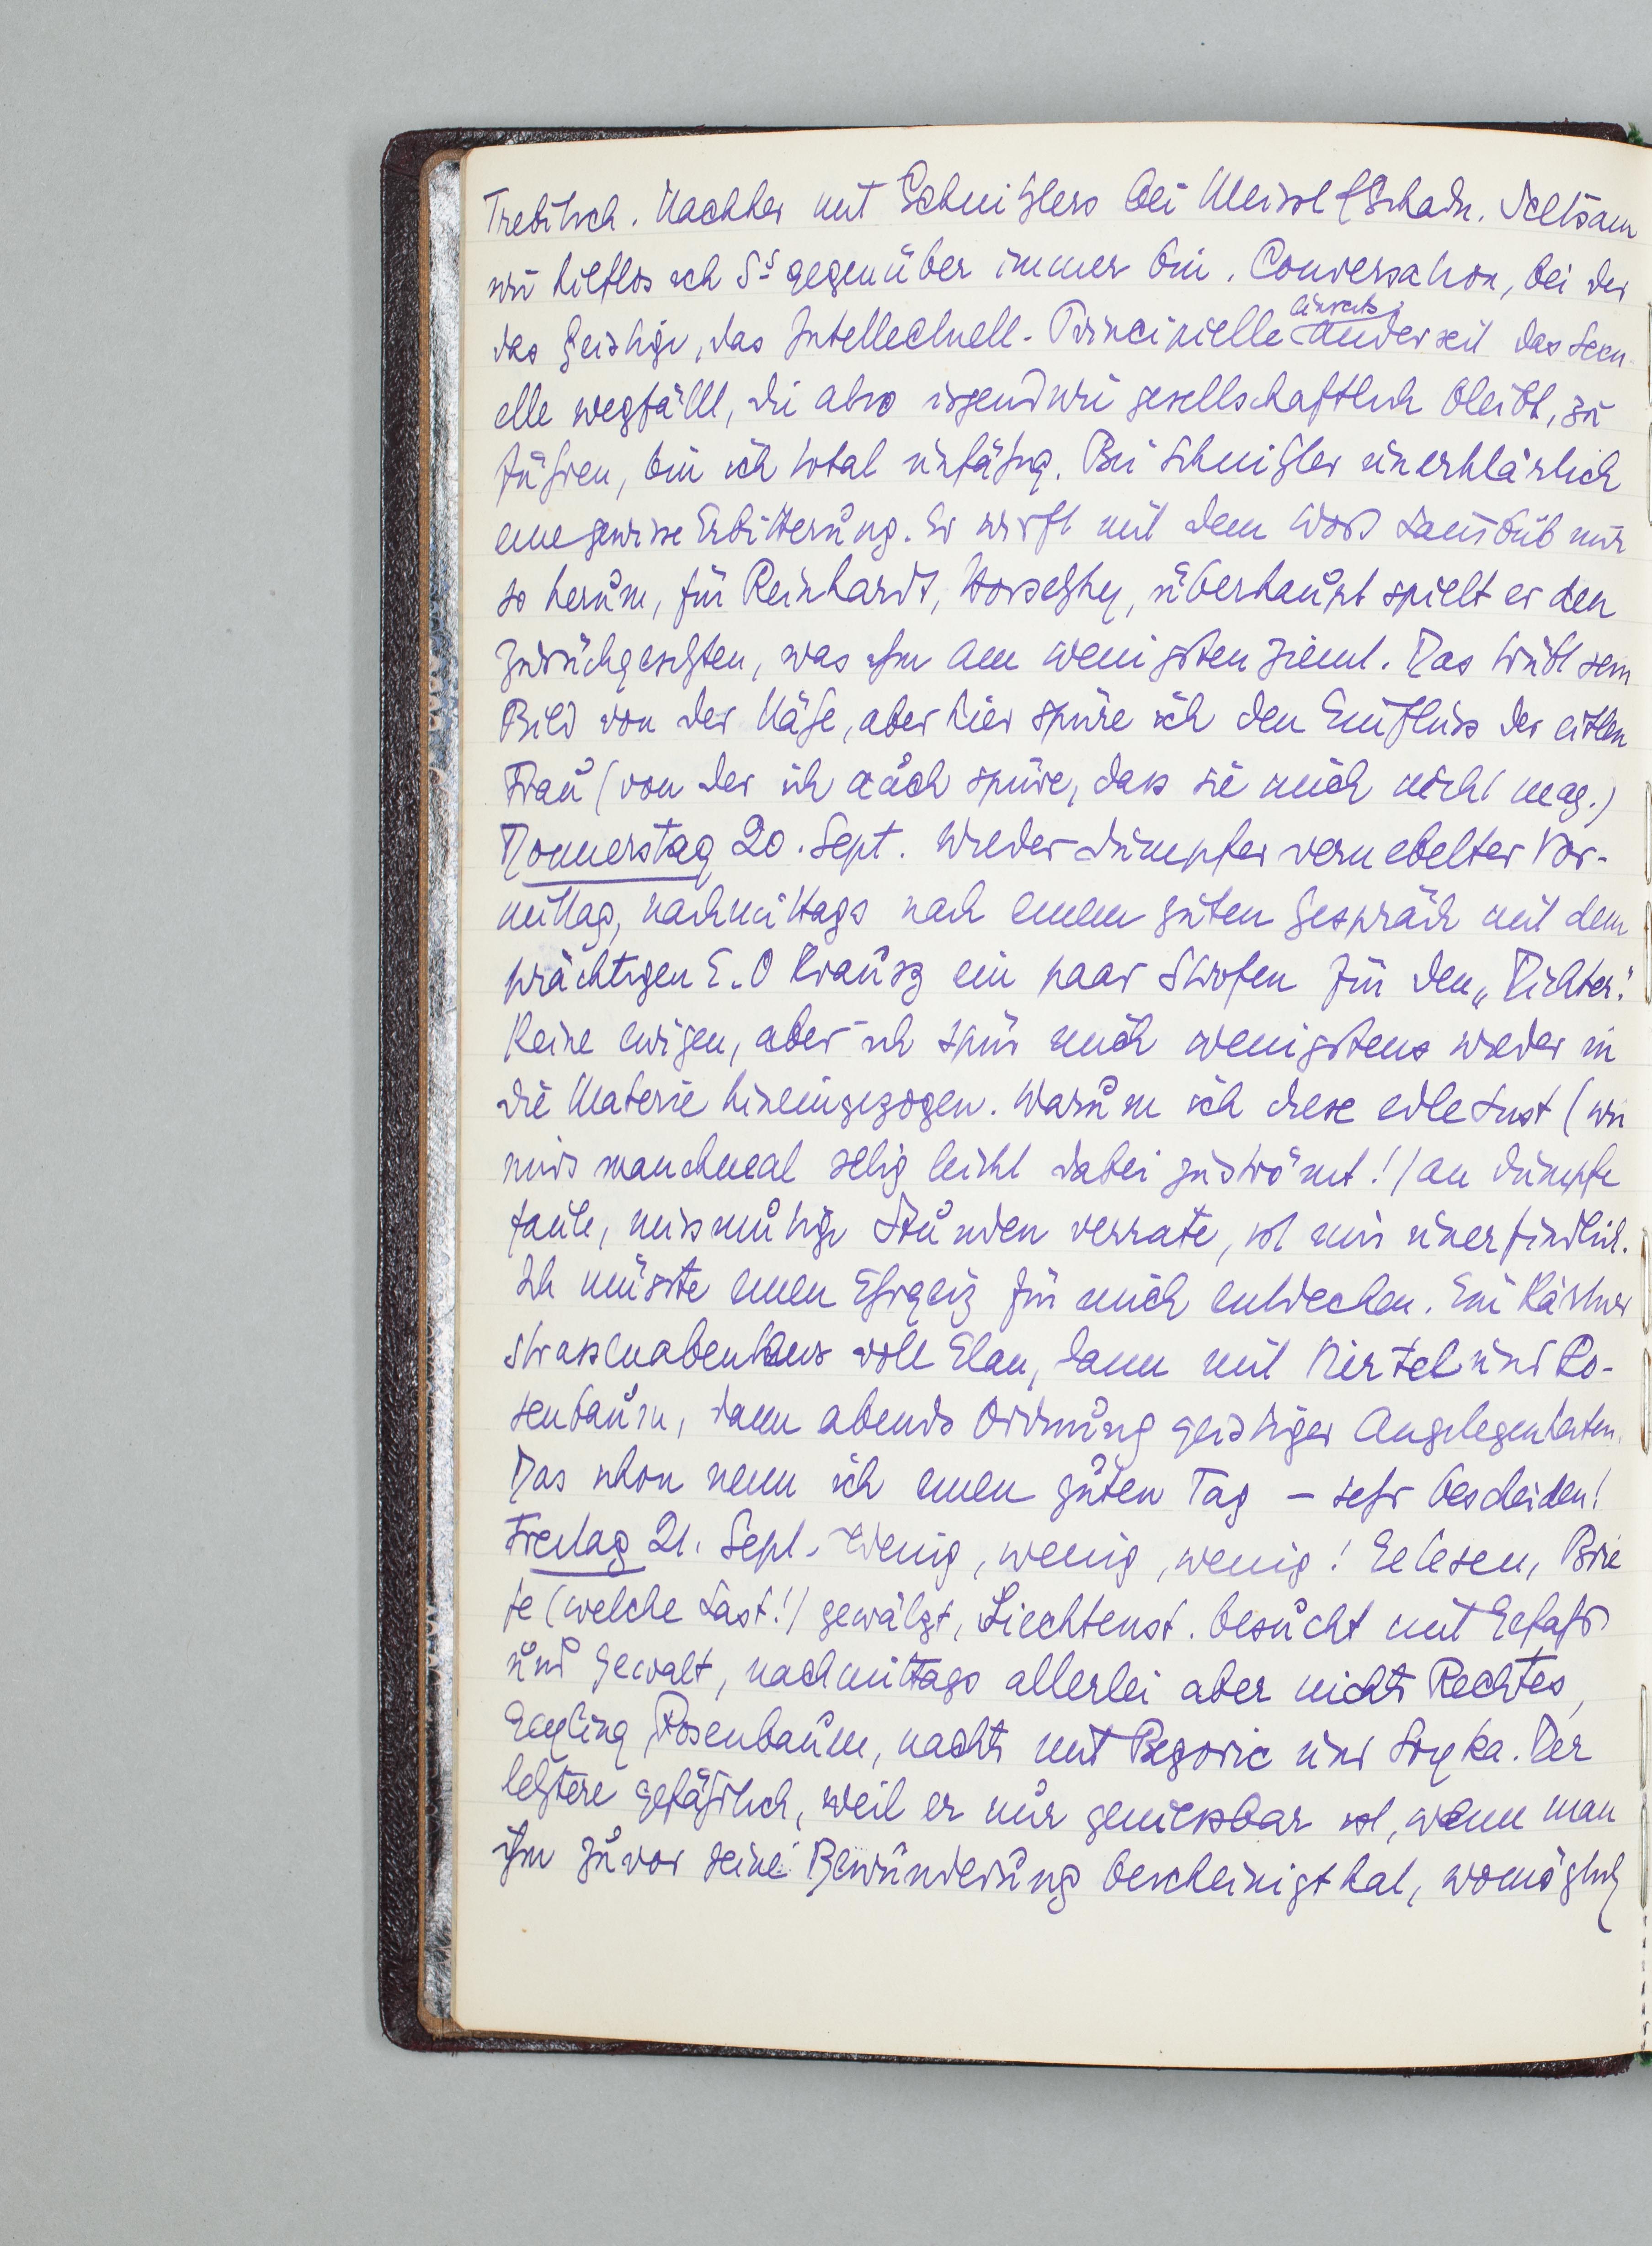 Trebitsch. Nachher mit Schnitzlers bei Meissl & Schadn. Seltsam
wie hilflos ich S.s gegenüber immer bin. Conversation, bei der
das Geistige, das Intellectuell-Principielle einerseits anderseit das Sexu-
elle wegfällt, die also irgendwie gesellschaftlich bleibt, zu
führen, bin ich total unfähig. Bei Schnitzler unerklärlich
eine gewisse Erbitterung. Er wirft mit dem Wort Lausbub nur
so herum, für Reinhardt, überhaupt spielt er den
Zurückgesetzten, was ihm am wenigsten ziemt. Das trübt sein
Bild von der Nähe, aber hier spüre ich den Einfluss der eitlen
Frau (von der ich auch spüre, dass sie mich nicht mag.)
Donnerstag 20. Sept. Wieder dumpfer vernebelter Vor-
mittag, nachmittags nach einem guten Gespräch mit dem
prächtigen E. O Krausz ein paar Strofen für den „Dichter."
Keine ewigen, aber ich spür mich wenigstens wieder in
die Materie hineingezogen. Warum ich diese edle Lust (wie
mirs manchmal selig leicht dabei zuströmt!) an dumpfe
faule, missmutige Stunden verrate, ist mir unerfindlich.
Ich müsste einen Ehrgeiz für mich entdecken. Ein Kärtner
strassenabenteuer voll Elan, dann mit Viertel und Ro-
senbaum, dann abends Ordnung geistiger Angelegenheiten.
Das schon nenn ich einen guten Tag – sehr bescheiden!
Freitag 21. Sept. Wenig, wenig, wenig! Gelesen, Brie
fe (welche Last!) gewälzt, Liechtenst. besucht mit Gefahr
und Gewalt, nachmittags allerlei aber nichts Rechtes,
Rosenbaum, nachts mit und Soyka. Der
letztere gefährlich, weil er nur geniessbar ist, wenn man
ihm zuvor seine Bewunderung bescheinigt hat, womöglich